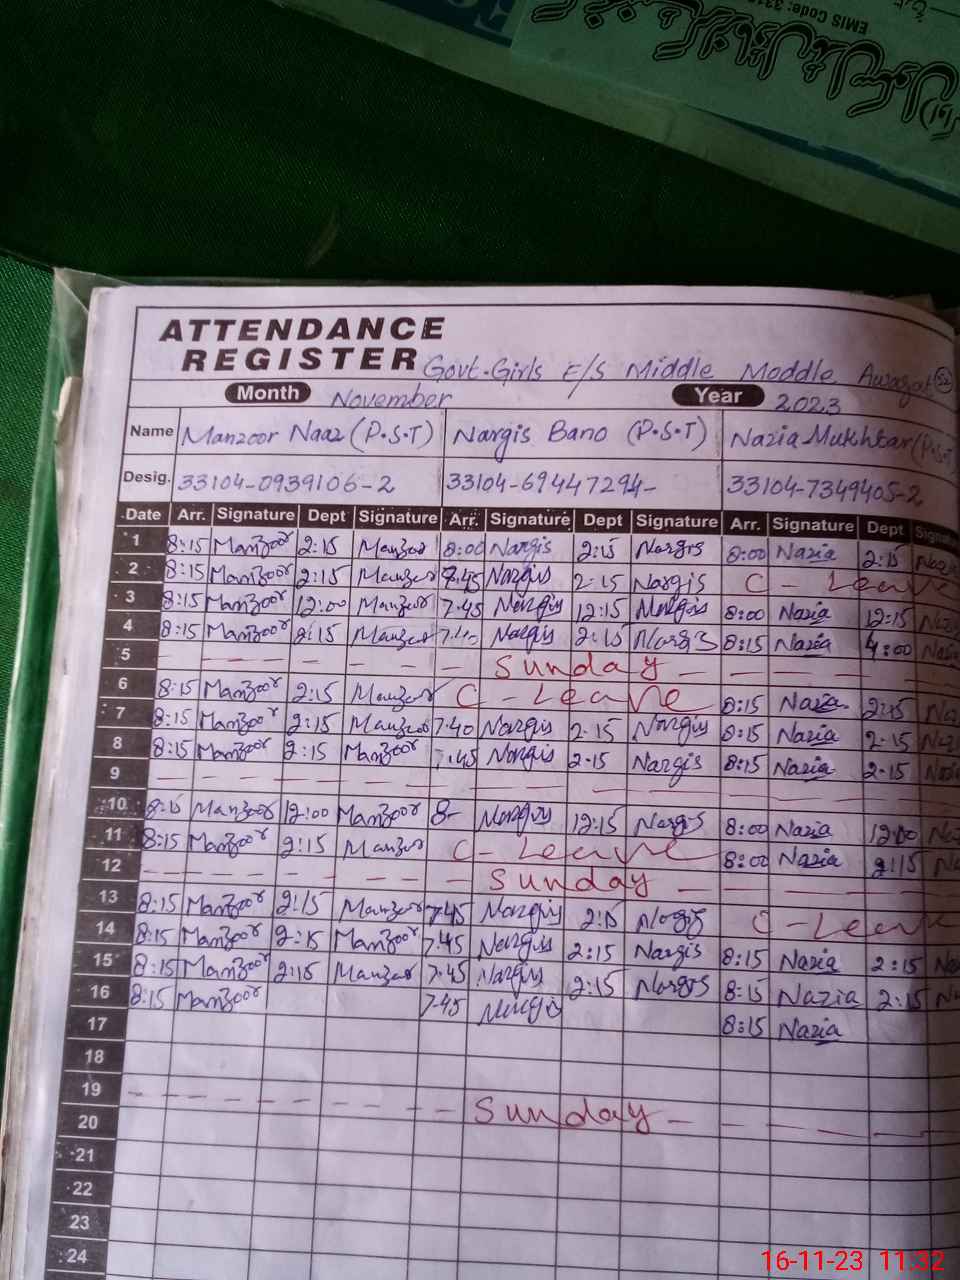 EMIS Code: 331
ATTENDANCE
REGISTER Govt. Girls E/S Middle Moddle Awagat 52
Month November Year 2023
Name Manzoor Naaz (P.S.T) Nargis Bano (P.S.T) Nazia Mukhtar (P.S.T
Desig. 33104-0939106-2 33104-69447294- 33104-7349405-2
Date Arr. Signature Dept Signature Arr. Signature Dept Signature Arr. Signature Dept Signatu
1 8:15 Manzoor 2:15 Manzoor 8:00 Nargis 2:15 Nargis 8:00 Nazia 2:15 Naz
2 8:15 Manzoor 2:15 Manzoor 7.45 Nargis 2.15 Nargis C - Leave
3 8:15 Manzoor 12:00 Manzoor 7.45 Nargis 12:15 Nargis 8:00 Nazia 12:15 Naz
4 8:15 Manzoor 2:15 Manzoor 7.40 Nargis 2:15 Nargis 8:15 Nazia 4:00 Naz
5 - - - - - - - Sunday - - - -
6 8:15 Manzoor 2:15 Manzoor C - Leave 8:15 Nazia 2:15 Naz
7 8:15 Manzoor 2:15 Manzoor 7.40 Nargis 2.15 Nargis 8:15 Nazia 2.15 Naz
8 8:15 Manzoor 2:15 Manzoor 7.45 Nargis 2.15 Nargis 8:15 Nazia 2.15 Nazi
9 - - - - - - - - - - - -
10 8:15 Manzoor 12:00 Manzoor 8- Nargis 12:15 Nargis 8:00 Nazia 12:00 Na
11 8:15 Manzoor 2:15 Manzoor C - Leave 8:00 Nazia 2:15 Na
12 - - - - - - - Sunday - - - -
13 8:15 Manzoor 2:15 Manzoor 7.45 Nargis 2:15 Nargis C - Leave
14 8:15 Manzoor 2:15 Manzoor 7.45 Nargis 2:15 Nargis 8:15 Nazia 2:15 Na
15 8:15 Manzoor 2:15 Manzoor 7.45 Nargis 2:15 Nargis 8:15 Nazia 2:15 N
16 8:15 Manzoor 7.45 Nargis 8:15 Nazia
17
18
19 - - - - - - - Sunday - - - -
20
21
22
23
24
16-11-23 11:32